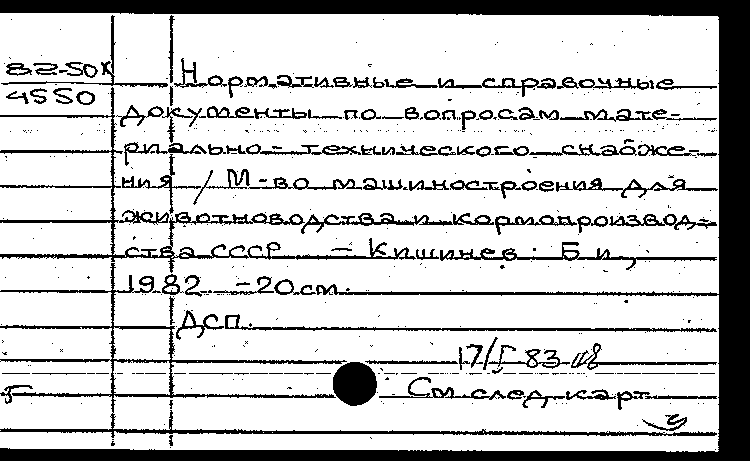 82-50к
4550
Нормативные и справочные
документы по вопросам мате-
риально-технического снабже-
ния / М-во машиностроения для
животноводства и кормопроизвод-
ства СССР - Кишинев: Б и,
1982 -20см.
ДСП.
17/I 83
См след карт